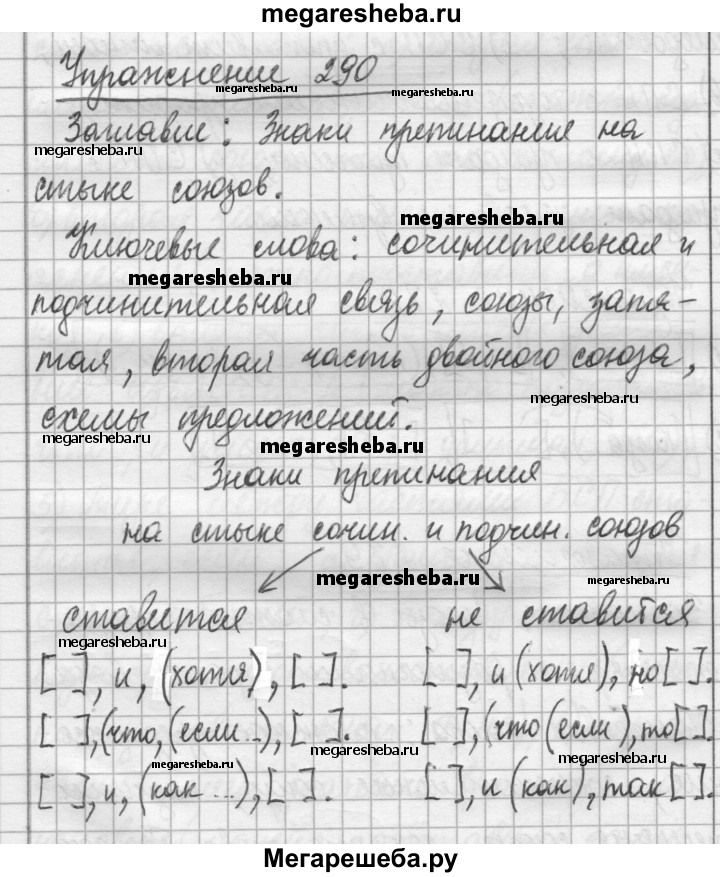 megaresheba.ru
Упражнение 290
megaresheba.ru
megaresheba.ru
Заглавие: Знаки препинания на
megaresheba.ru
стыке союзов.
megaresheba.ru
Ключевые слова: сочинительная и
megaresheba.ru
подчинительная связь, союзы, запя-
тая, вторая часть двойного союза,
megaresheba.ru
схемы предложений.
megaresheba.ru
megaresheba.ru
Знаки препинания
на стыке сочин. и подчин. союзов
megaresheba.ru
megaresheba.ru
ставится не ставится
megaresheba.ru
[ ], и, (хотя), [ ]. [ ], и (хотя), но [ ].
[ ], (что, (если...), [ ]. [ ], (что (если), то [ ].
megaresheba.ru
megaresheba.ru
megaresheba.ru
[ ], и, (как ...), [ ]. [ ], и (как), так [ ].
Мегарешеба.ру